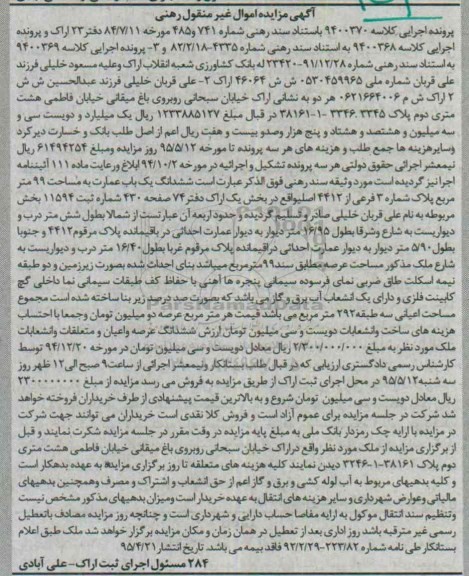 آگهی مزایده اموال غیر منقول رهنی
پرونده اجرایی کلاسه ۹۴۰۰۳۷۰ باستناد سند رهنی شماره ۷۴۱ و۴۸۵ مورخه ۸۴/۷/۱۱ دفتر۲۳ اراک و پرونده
اجرایی کلاسه ۹۴۰۰۳۶۸ به استناد سند رهنی شماره ۴۳۳۵-۸۲/۲/۱۸ و ۳- پرونده اجرایی کلاسه ۹۴۰۰۳۶۹
به استناد سند رهنی شماره ۲۳۴۲۰-۹۱/۱۲/۲۸ له بانک کشاورزی شعبه انقلاب اراک وعلیه مسعود خلیلی فرزند
علی قربان شماره ملی ۰۵۳۰۴۵۹۹۶۵ ش ش ۴۶۰۶۴ اراک ۲- علی قربان خلیلی فرزند عبدالحسین ش ش
۲ اراک ش م ۰۶۲۱۶۶۴۰۰۶ هر دو به نشانی اراک خیابان سبحانی روبروی باغ میقانی خیابان فاطمی هشت
متری دوم پلاک ۳۳۴۵ ۳۳۴۶-۱-۳۸۱۶۱ در قبال مبلغ ۱۲۳۳۸۸۵۱۳۷ ریال یک میلیارد و دویست سی و
سه میلیون و هشتصد و هشتاد و پنج هزار وصدو بیست و هفت ریال اعم از اصل طلب بانک و خسارت دیرکرد
وسایرهزینه ها جمع طلب و هزینه های هر سه پرونده تا مورخه ۹۵/۵/۱۲ روز مزایده ومبلغ ۶۱۴۹۴۲۵۴ ریال
نیمعشر اجرائی حقوق دولتی هر سه پرونده تشکیل و اجرائیه در مورخه ۹۴/۱۰/۲ ابلاغ ورعایت ماده ۱۱۱ آئیننامه
اجرا نیز گردیده است مورد وثیقه سند رهنی فوق الذکر عبارت است ششدانگ یک باب عمارت به مساحت ۹۹ متر
مربع پلاک شماره ۳ فرعی از ۴۴۱۲ اصلیواقع در بخش یک اراک دفتر ۷۴ صفحه ۴۳۰ شماره ثبت ۱۱۵۹۴ بخش
مربوطه به نام علی قربان خلیلی صادر وتسلیم گردیده و حدود اربعه آن عبارتست از شمالا بطول شش متر درب و
دیواریست به شارع وشرقا بطول ۱۶/۹۵ متر دیوار به دیوار عمارت احداثی در باقیمانده پلاک مرقوم ۴۴۱۲ و جنوبا
بطول ۵/۹۰ متر دیوار به دیوار عمارت احداثی درباقیمانده پلاک مرقوم غربا بطول ۱۶/۴۰ متر درب و دیواریست به
شارع ملک مذکور مساحت عرصه مطابق سند ۹۹ مترمربع میباشد بنای احداث شده بصورت زیرزمین و دو طبقه
نیمه اسکلت طاق ضربی نمای فرسوده سیمانی پنجره ها آهنی با حفاظ کف طبقات سیمانی نما داخلی گچ
کابینت فلزی و دارای یک انشعاب آب برق و گاز می باشد که بصورت صد درصد زیر بنا ساخته شده است مجموع
مساحت اعیانی سه طبقه ۲۹۲ متر مربع می باشد قیمت هر متر مربع عرصه دو میلیون تومان وجمعا با احتساب
هزینه های ساخت وانشعابات دویست و سی میلیون تومان ارزش ششدانگ عرصه واعیان و متعلقات وانشعابات
ملک مورد نظر به مبلغ ۲/۳۰۰/۰۰۰/۰۰۰ ریال معادل دویست و سی میلیون تومان در مورخه ۹۴/۱۲/۲۰ توسط
کارشناس رسمی دادگستری ارزیابی که در قبال طلب بستانکار ونیمعشر اجرائی از ساعت ۹ صبح الی ۱۲ ظهر روز
سه شنبه ۹۵/۵/۱۲ در محل اجرای ثبت اراک از طریق مزایده به فروش می رسد مزایده از مبلغ ۲۳۰۰۰۰۰۰۰۰
ریال معادل دویست و سی میلیون تومان شروع و به بالاترین قیمت پیشنهادی از طرف خریداران فروخته خواهد
شد شرکت در جلسه مزایده برای عموم آزاد است و فروش کلا نقدی است خریداران می توانند جهت شرکت
در مزایده با ارایه چک رمزدار بانک ملی به مبلغ پایه مزایده در وقت مقرر در جلسه مزایده شکرت نمایند و قبل
از برگزاری مزایده از ملک مورد نظر واقع دراراک خیابان سبحانی روبروی باغ میقانی خیابان فاطمی هشت متری
دوم پلاک ۳۸۱۶۱-۱-۳۲۴۶ دیدن نمایند کلیه هزینه های متعلقه تا روز برگزاری مزایده به عهده بدهکار است
و کلیه بدهیهای مربوط به آب لوله کشی و برق و گاز اعم از حق انشعاب و اشتراک و مصرف وهمچنین بدهیهای
مالیاتی وعوارض شهرداری و سایر هزینه های انتقال به عهده خریدار است ومیزان بدهیهای مذکور مشخص نیست
وتنظیم سند انتقال موکول به ارایه مفاصا حساب دارایی و شهرداری است و چنانچه روز مزایده مصادف باتعطیل
رسمی غیر مترقبه باشد روز اداری بعد از تعطیل در همان زمان و مکان مزایده برگزار خواهد شد ملک طبق اعلام
بستانکار طی نامه شماره ۲۲۳/۸۲-۹۲/۲/۲۹ فاقد بیمه می باشد. تاریخ انتشار ۹۵/۴/۲۱
۲۸۴ مسئول اجرای ثبت اراک-علی آبادی